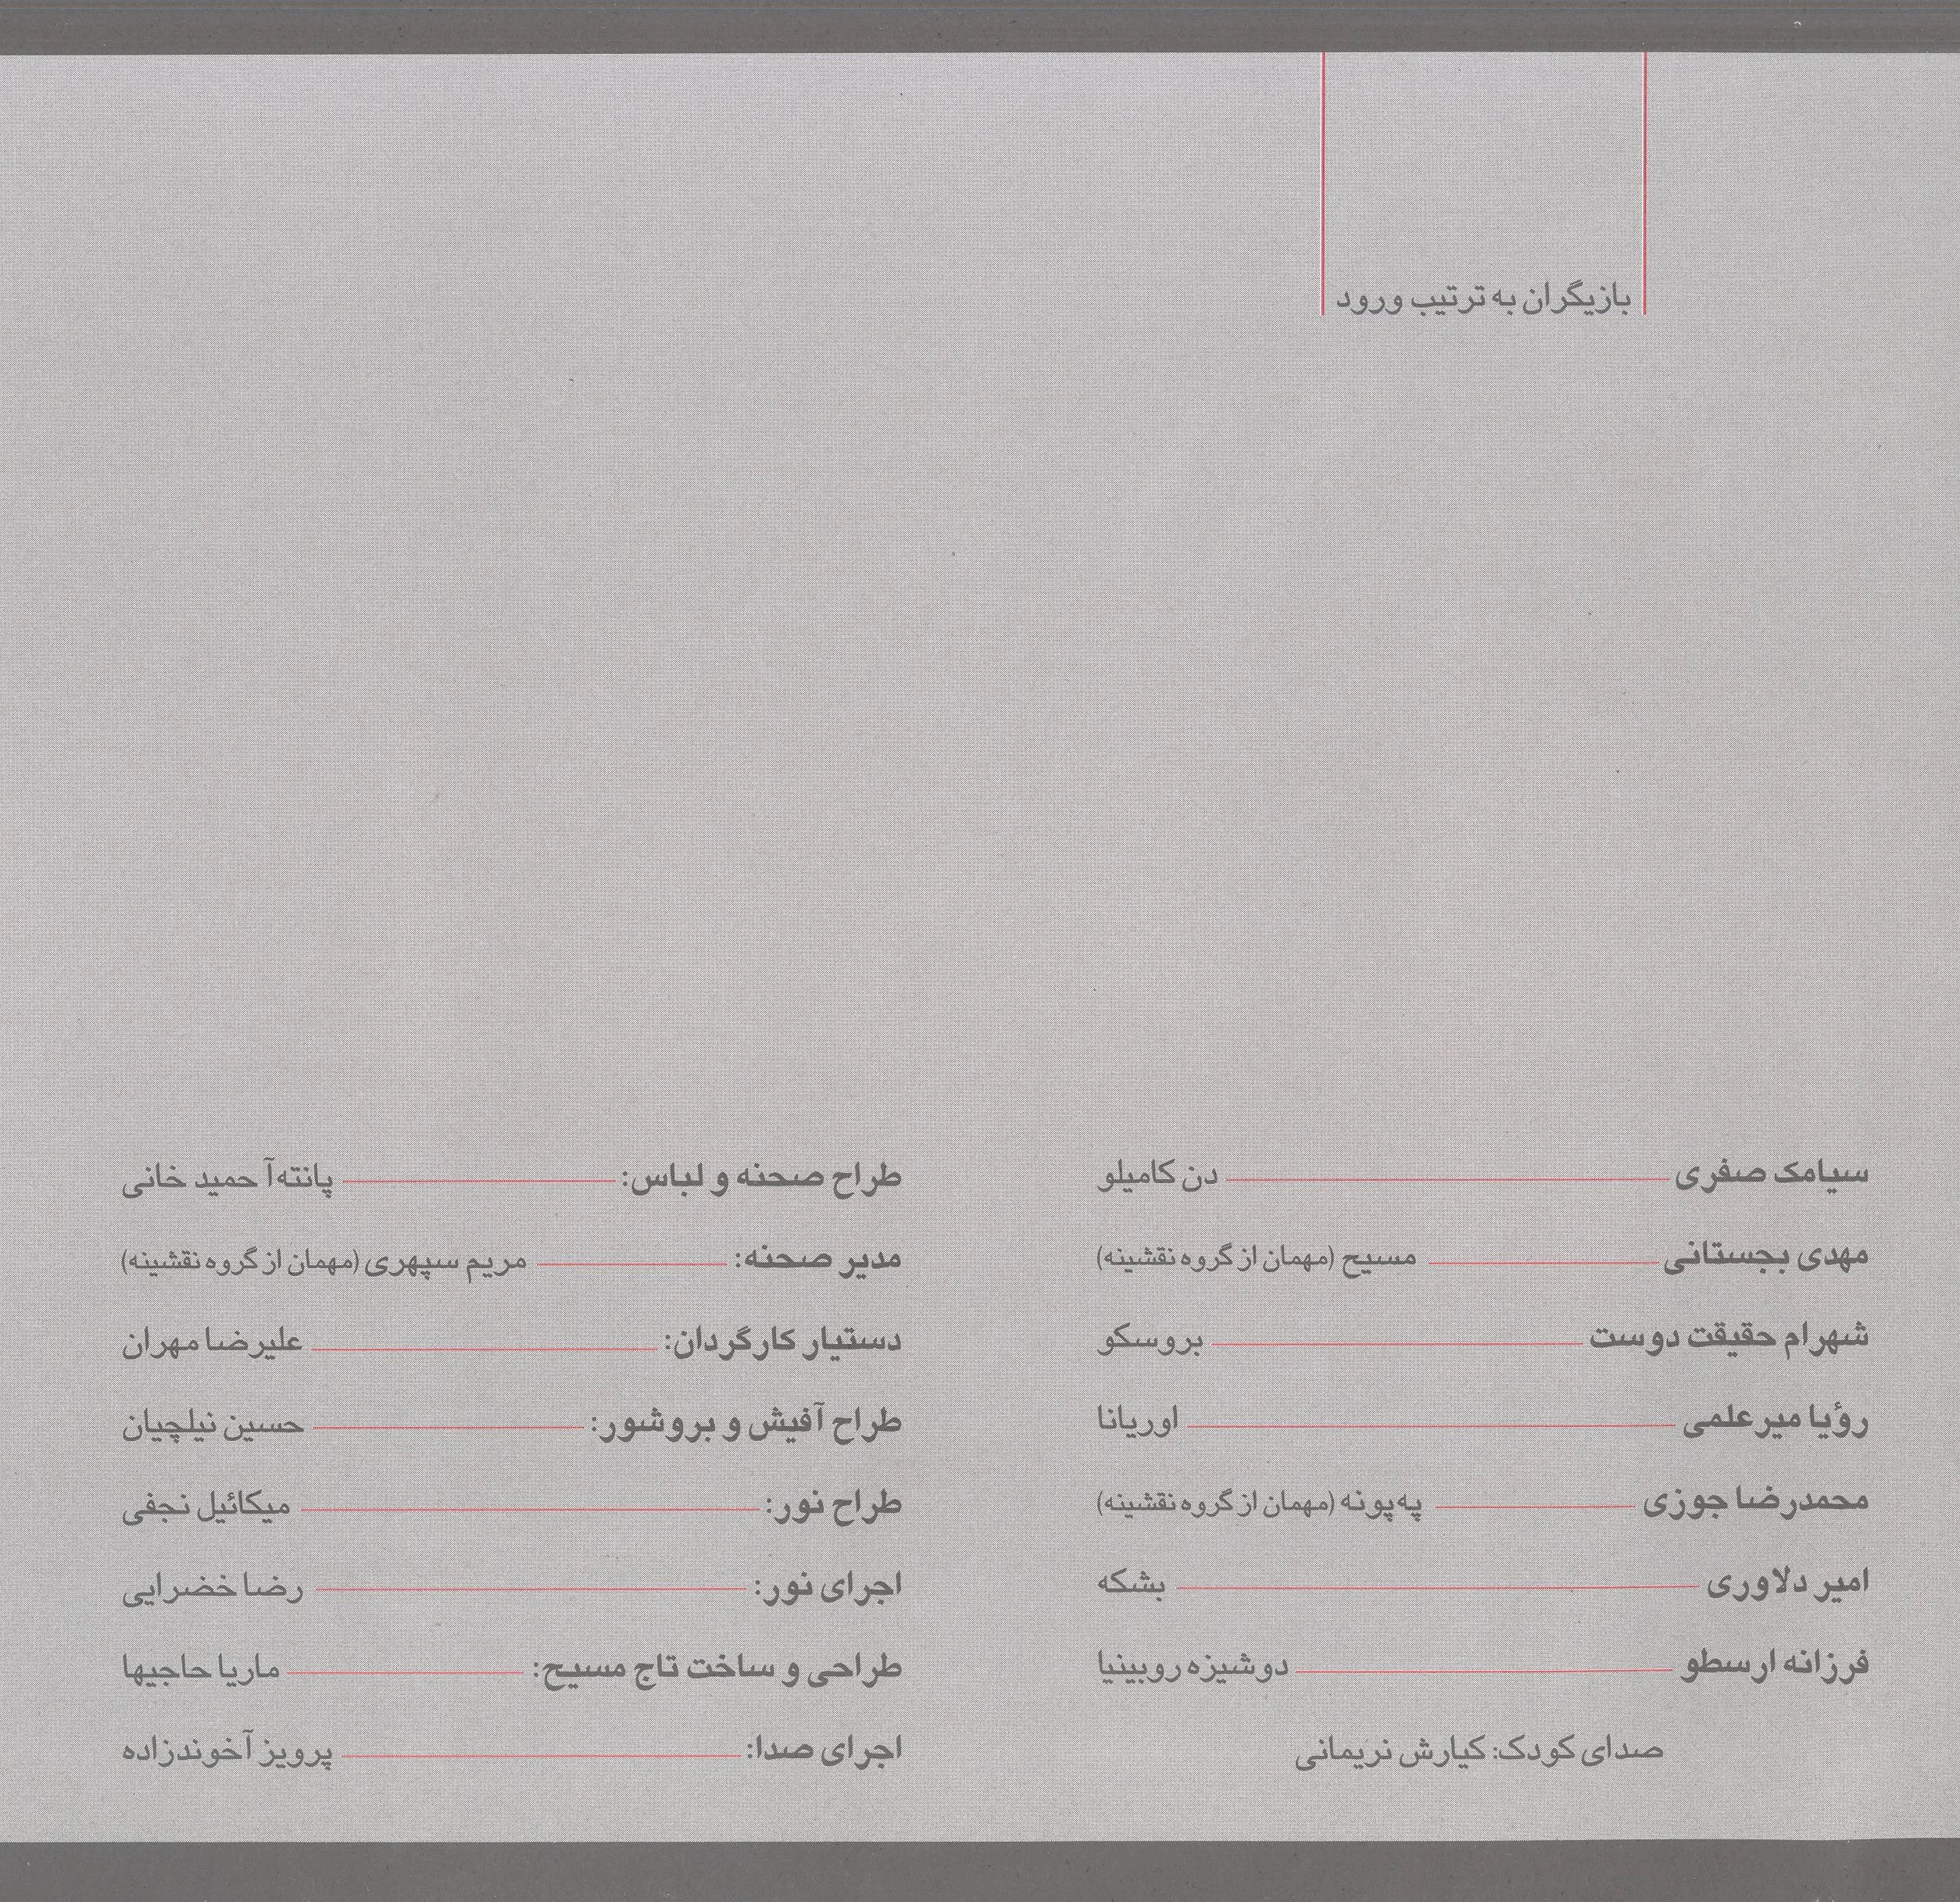 بازیگران به ترتیب ورود
سیامک صفری دن کامیلو
مهدی بجستانی مسیح (مهمان از گروه نقشینه)
شهرام حقیقت دوست بروسکو
رؤیا میرعلمی اوریانا
محمدرضا جوزی په‌پونه (مهمان از گروه نقشینه)
امیر دلاوری بشکه
فرزانه ارسطو دوشیزه روبینیا
صدای کودک: کیارش نریمانی
طراح صحنه و لباس: پانته‌آ حمید خانی
مدیر صحنه: مریم سپهری (مهمان از گروه نقشینه)
دستیار کارگردان: علیرضا مهران
طراح آفیش و بروشور: حسین نیلچیان
طراح نور: میکائیل نجفی
اجرای نور: رضا خضرایی
طراحی و ساخت تاج مسیح: ماریا حاجیها
اجرای صدا: پرویز آخوندزاده